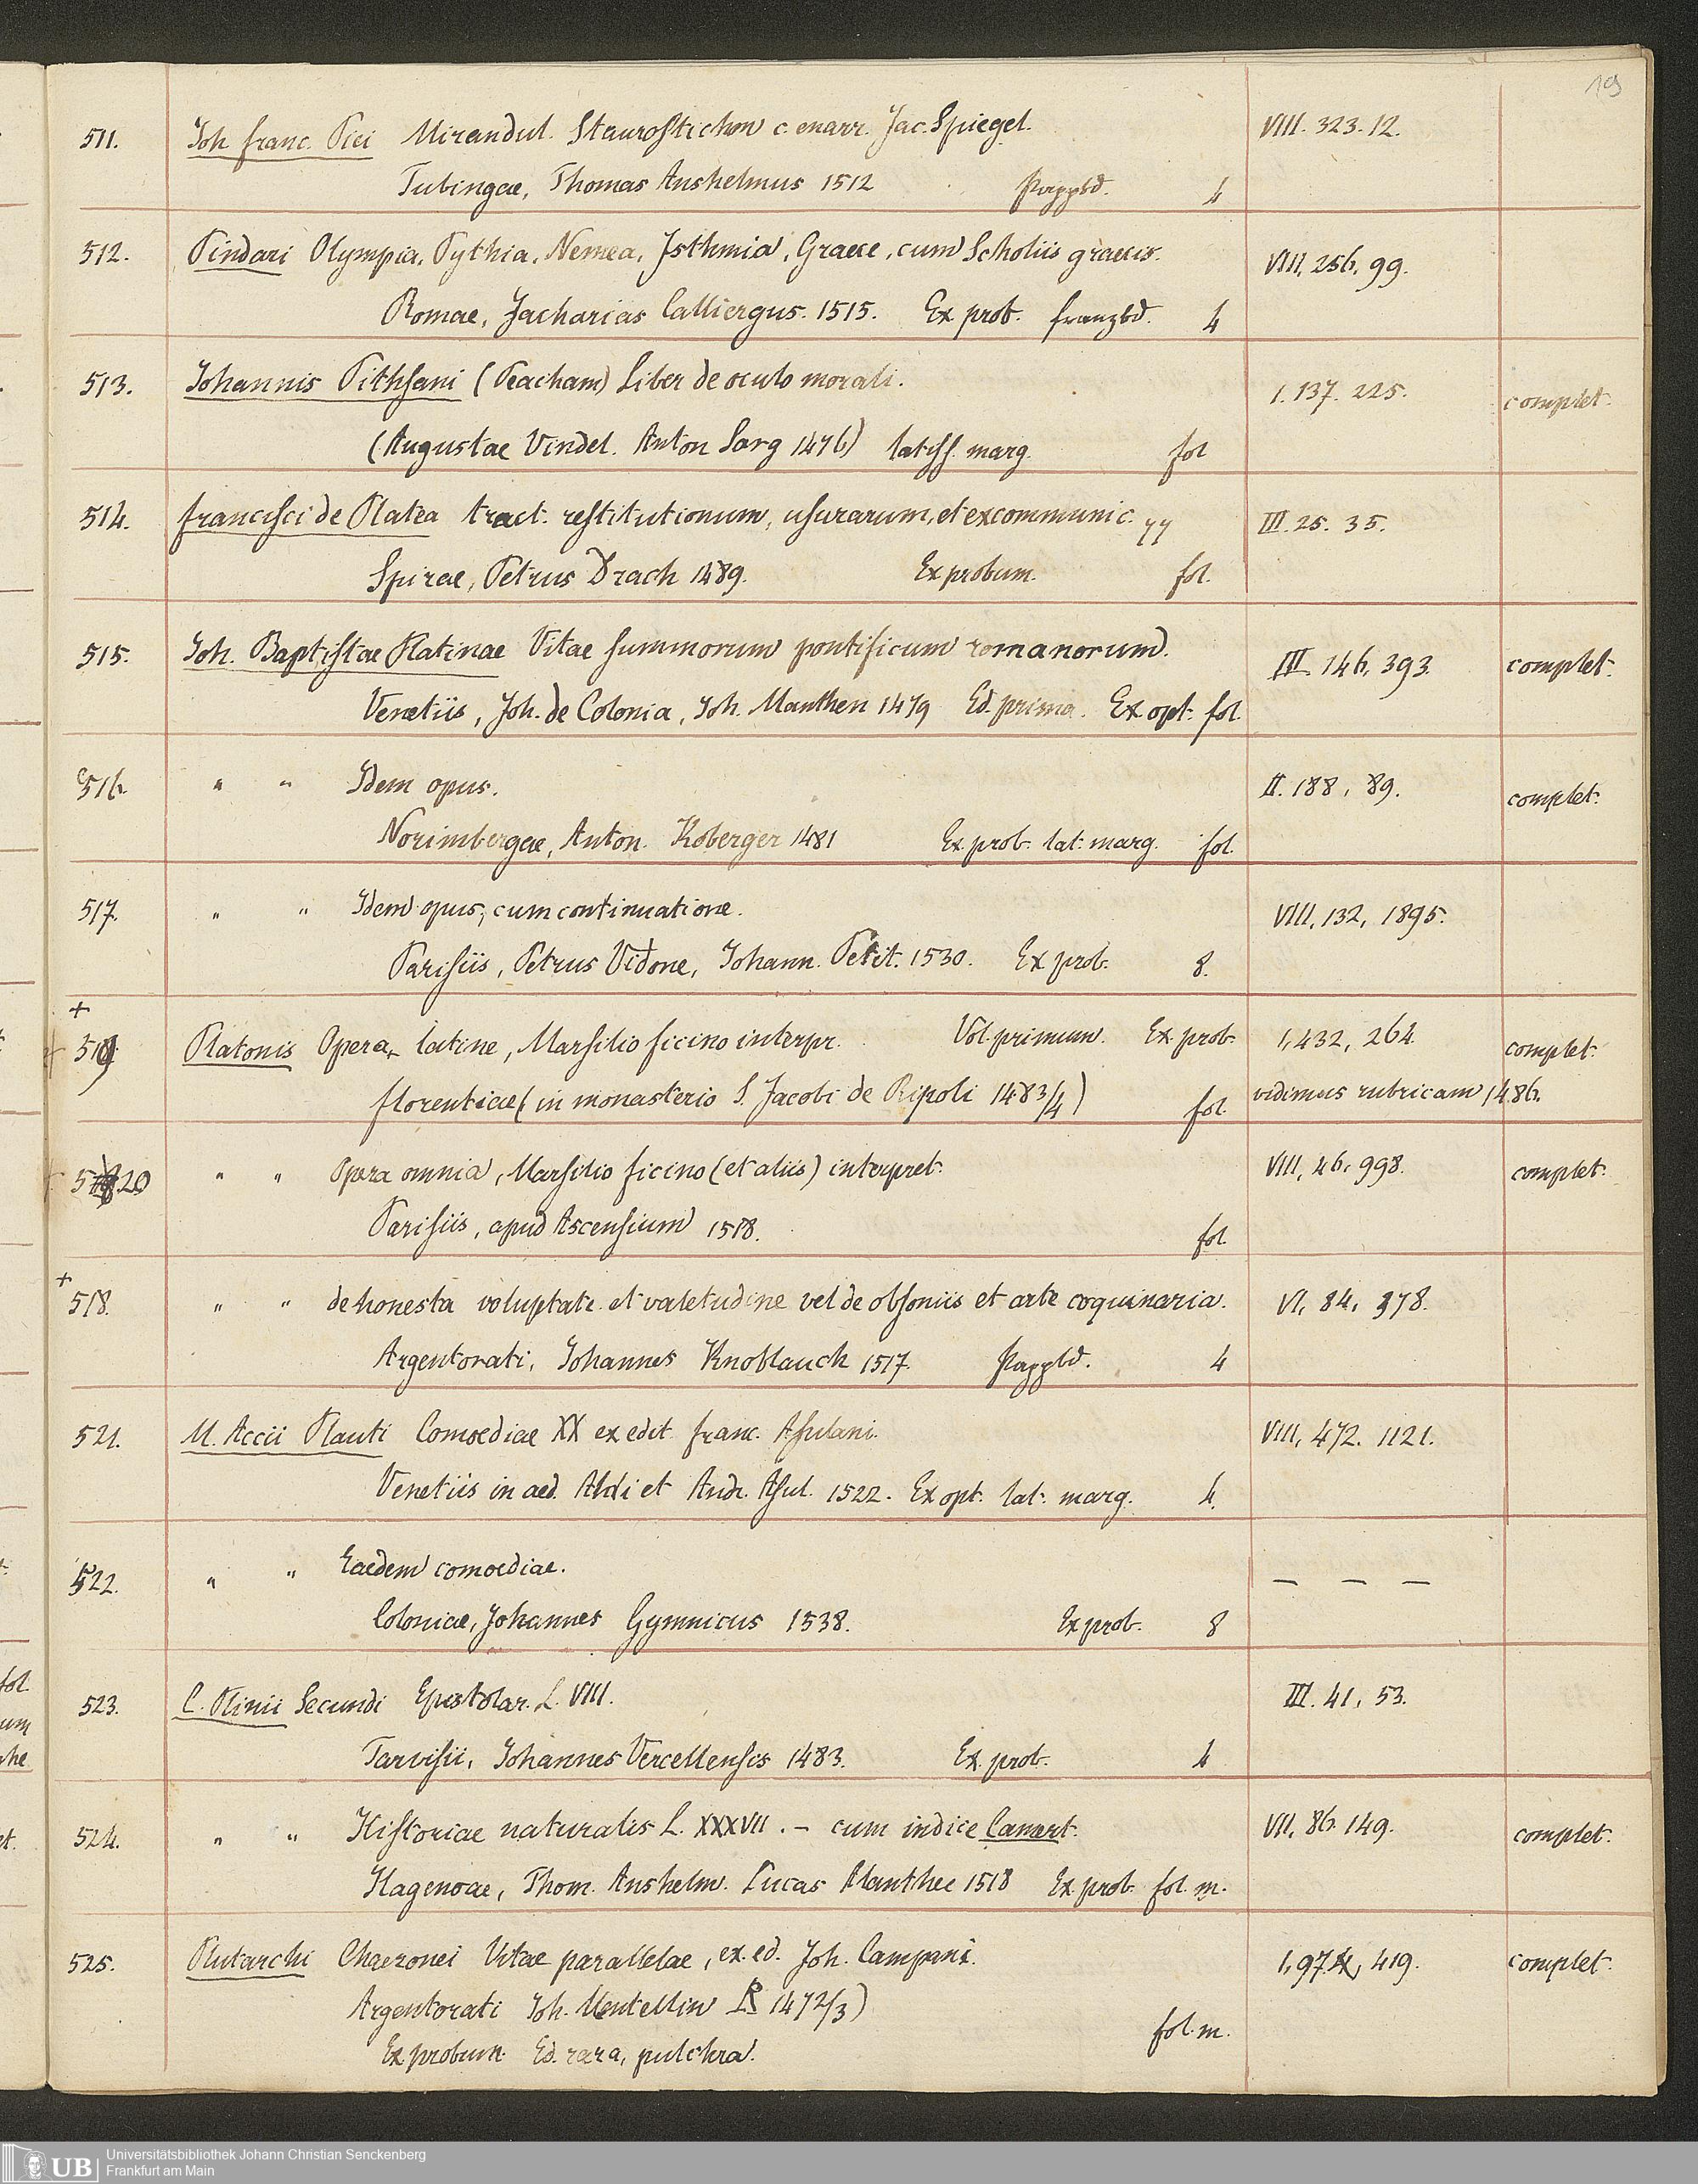 19
511. Joh. Franc. Pici Mirandul. Staurostichon c. enarr. Jac. Spiegel. VIII. 323. 12.
Tubingae, Thomas Anshelmus 1512 Pappbd. 4
512. Pindari Olympia, Pythia, Nemea, Isthmia, Graece, cum Scholiis graecis. VIII, 256, 99.
Romae, Zacharias Calliergus. 1515. Ex prob. Franzbd. 4
513. Johannis Pithsani (Peacham) Liber de oculo morali. I. 137. 225. complet.
(Augustae Vindel. Anton Sorg 1476) latiss. marg. fol
514. Francisci de Platea tract. restitutionum, usurarum, et excommunic. III. 25. 35.
Spirae, Petrus Drach 1489. Ex probum. fol.
515. Joh. Baptistae Platinae Vitae summorum pontificum romanorum. III. 146, 393. complet.
Venetiis, Joh. de Colonia, Joh. Manthen 1479 Ed. prima. Ex opt. fol.
516. " " Idem opus. II. 188, 89. complet.
Norimbergae, Anton. Koberger 1481 Ex prob. lat. marg. fol.
517. " " Idem opus, cum continuatione. VIII, 132, 1895.
Parisiis, Petrus Vidone, Johann. Petit. 1530. Ex prob. 8.
+
519 Platonis Opera, latine, Marsilio Ficino interpr. Vol. primum. Ex prob. I, 432, 264. complet.
Florentiae (in monasterio S. Jacobi de Ripoli 1483/4) fol. vidimus rubricam 1486.
520 " " Opera omnia, Marsilio Ficino (et aliis) interpret. VIII, 46, 998. complet.
Parisiis, apud Ascensium 1518. fol.
+
518. " " de honesta voluptate et valetudine vel de obsoniis et arte coquinaria. VI, 84, 378.
Argentorati, Johannes Knoblauch 1517. Pappbd. 4
521. M. Accii Plauti Comoediae XX ex edit. Franc. Asulani. VIII, 472. 1121.
Venetiis in aed. Aldi et Andr. Asul. 1522. Ex opt. lat. marg. 4.
522. " " Eaedem comoediae. — — —
Coloniae, Johannes Gymnicus 1538. Ex prob. 8
523. C. Plinii Secundi Epistolar. L. VIII. III. 41, 53.
Tarvisii, Johannes Vercellensis 1483. Ex. prob. 4
524. " " Historiae naturalis L. XXXVII. – cum indice Camert. VII, 86. 149. complet.
Hagenoae, Thom. Anshelm. Lucas Alanthee 1518 Ex prob. fol. m.
525. Plutarchi Chaeronei Vitae parallelae, ex. ed. Joh. Campani. I, 974, 419. complet.
Argentorati Joh. Mentellin R 1472/3)
fol. m.
Ex probum. Ed. rara, pulchra.
fol.
um
he
et.
UB Universitätsbibliothek Johann Christian Senckenberg
Frankfurt am Main